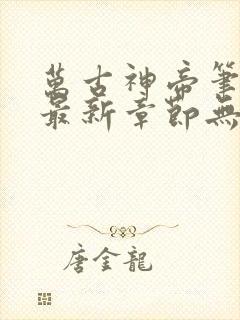 萬古神帝筆
最新章節無
唐金龍